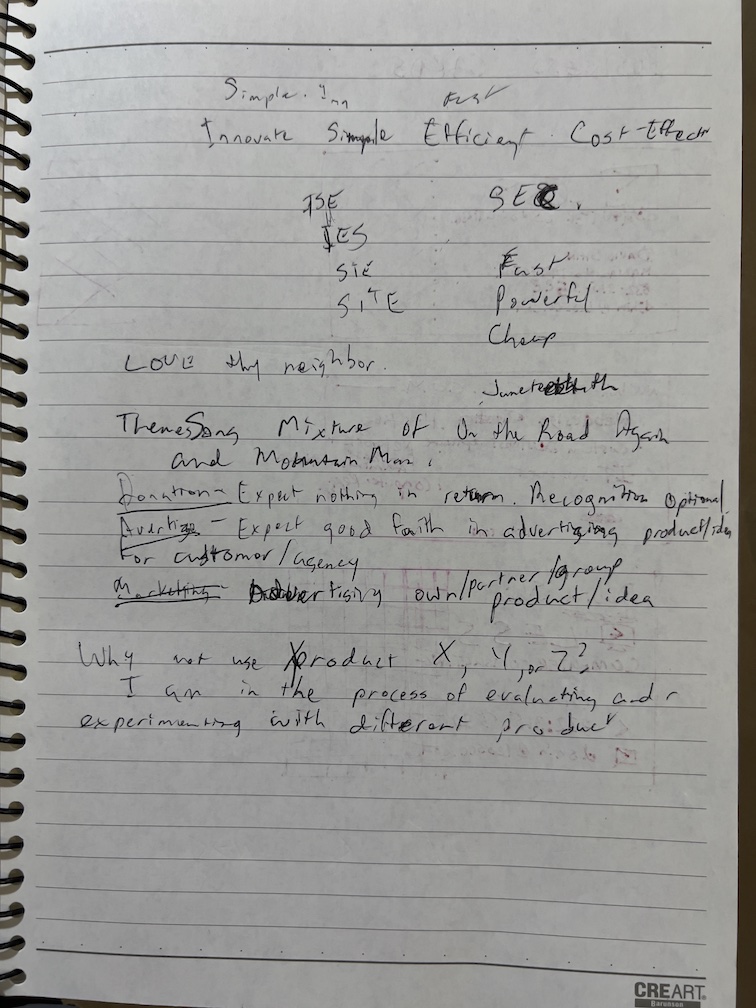 Simple. Inn Fast
Innovate Simple Efficient Cost-Effectv
ISE SEC.
IES
SIE Fast
SITE Powerful
Cheap
LOVE thy neighbor.
Juneteenth
ThemeSong Mixture of On the Road Again
and Mountain Man.
Donation - Expect nothing in return. Recognition Optional
Avertize - Expect good faith in advertizing product/idea
For customer/agency
Marketing - Advertising own/partner/group
product/idea
Why not use product X, Y, or Z?
I am in the process of evaluating and
experimenting with different product
CREART.
Barunson